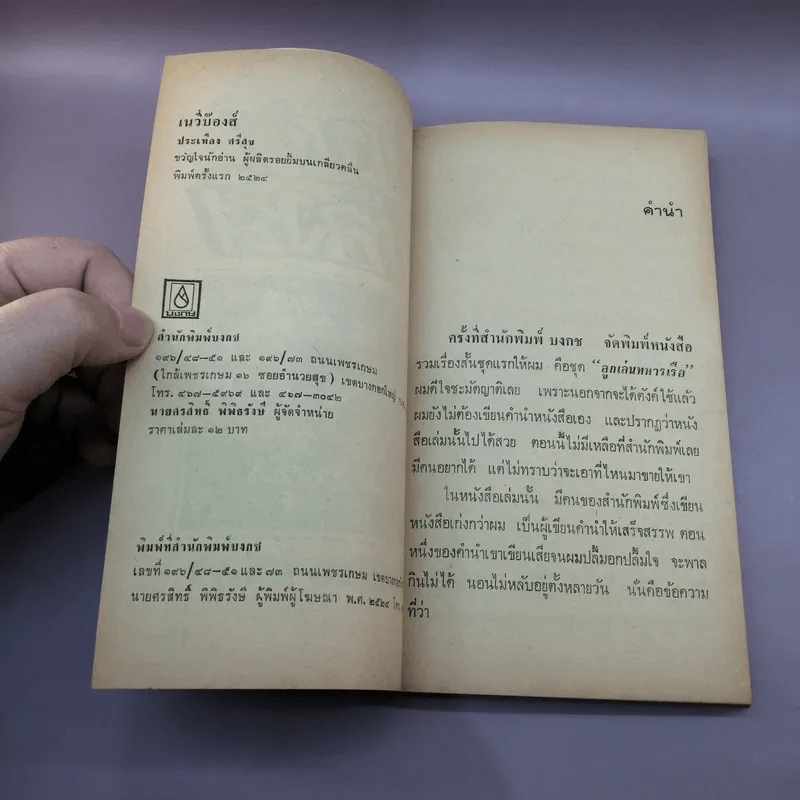 เนวี่บ๊องส์
ประเทือง ศรีสุข
ขวัญใจนักอ่าน ผู้ผลิตรอยยิ้มบนเกลียวคลื่น
พิมพ์ครั้งแรก ๒๕๒๔
บงกช
สำนักพิมพ์บงกช
๑๙๖/๔๘–๕๑ และ ๑๙๖/๗๓ ถนนเพชรเกษม
(ใกล้เพชรเกษม ๑๖ ซอยอำนวยสุข) เขตบางกอกใหญ่
โทร. ๔๖๗–๕๙๖๙ และ ๔๖๗–๓๐๔๒
นายศรสิทธิ์ พิพิธรังษี ผู้จัดจำหน่าย
ราคาเล่มละ ๑๒ บาท
พิมพ์ที่สำนักพิมพ์บงกช
เลขที่ ๑๙๖/๔๘–๕๑ และ ๗๓ ถนนเพชรเกษม
นายศรสิทธิ์ พิพิธรังษี ผู้พิมพ์ผู้โฆษณา พ.ศ. ๒๕๒๔
คำนำ
ครั้งที่สำนักพิมพ์ บงกช จัดพิมพ์หนังสือ
รวมเรื่องสั้นชุดแรกให้ผม คือชุด “ลูกเล่นทหารเรือ”
ผมดีใจชะมัดญาติเลย เพราะนอกจากจะได้ตังค์ใช้แล้ว
ผมยังไม่ต้องเขียนคำนำหนังสือเอง และปรากฏว่าหนัง
สือเล่มนั้นไปได้สวย ตอนนี้ไม่มีเหลือที่สำนักพิมพ์เลย
มีคนอยากได้ แต่ไม่ทราบว่าจะเอาที่ไหนมาขายให้เขา
ในหนังสือเล่มนั้น มีคนของสำนักพิมพ์ซึ่งเขียน
หนังสือเก่งกว่าผม เป็นผู้เขียนคำนำให้เสร็จสรรพ ตอน
หนึ่งของคำนำเขาเขียนเสียจนผมปลื้มอกปลื้มใจ จะพาล
กินไม่ได้ นอนไม่หลับอยู่ตั้งหลายวัน นั่นคือข้อความ
ที่ว่า